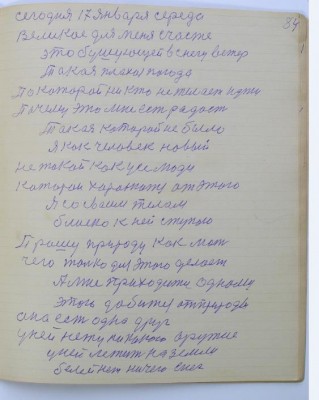 34
сегодня 17 января середа
Великое для меня счасте
это бушующей в снегу ветер
Такая плоха погода
По которой никто не желает идти
Почему это мне ест радост
Такая которой не было
Я как человек новый
не такой как усе люди
которои хоронятц от этого
Я со своим телом
близко к ней ступаю
Прашу природу как мат
чего толко для этого делает
А мне приходитц одному
этого добитц от природы
она ест одна друг
у ней нету никакого оружие
у ней лежит на земле
белей нет ничего снег